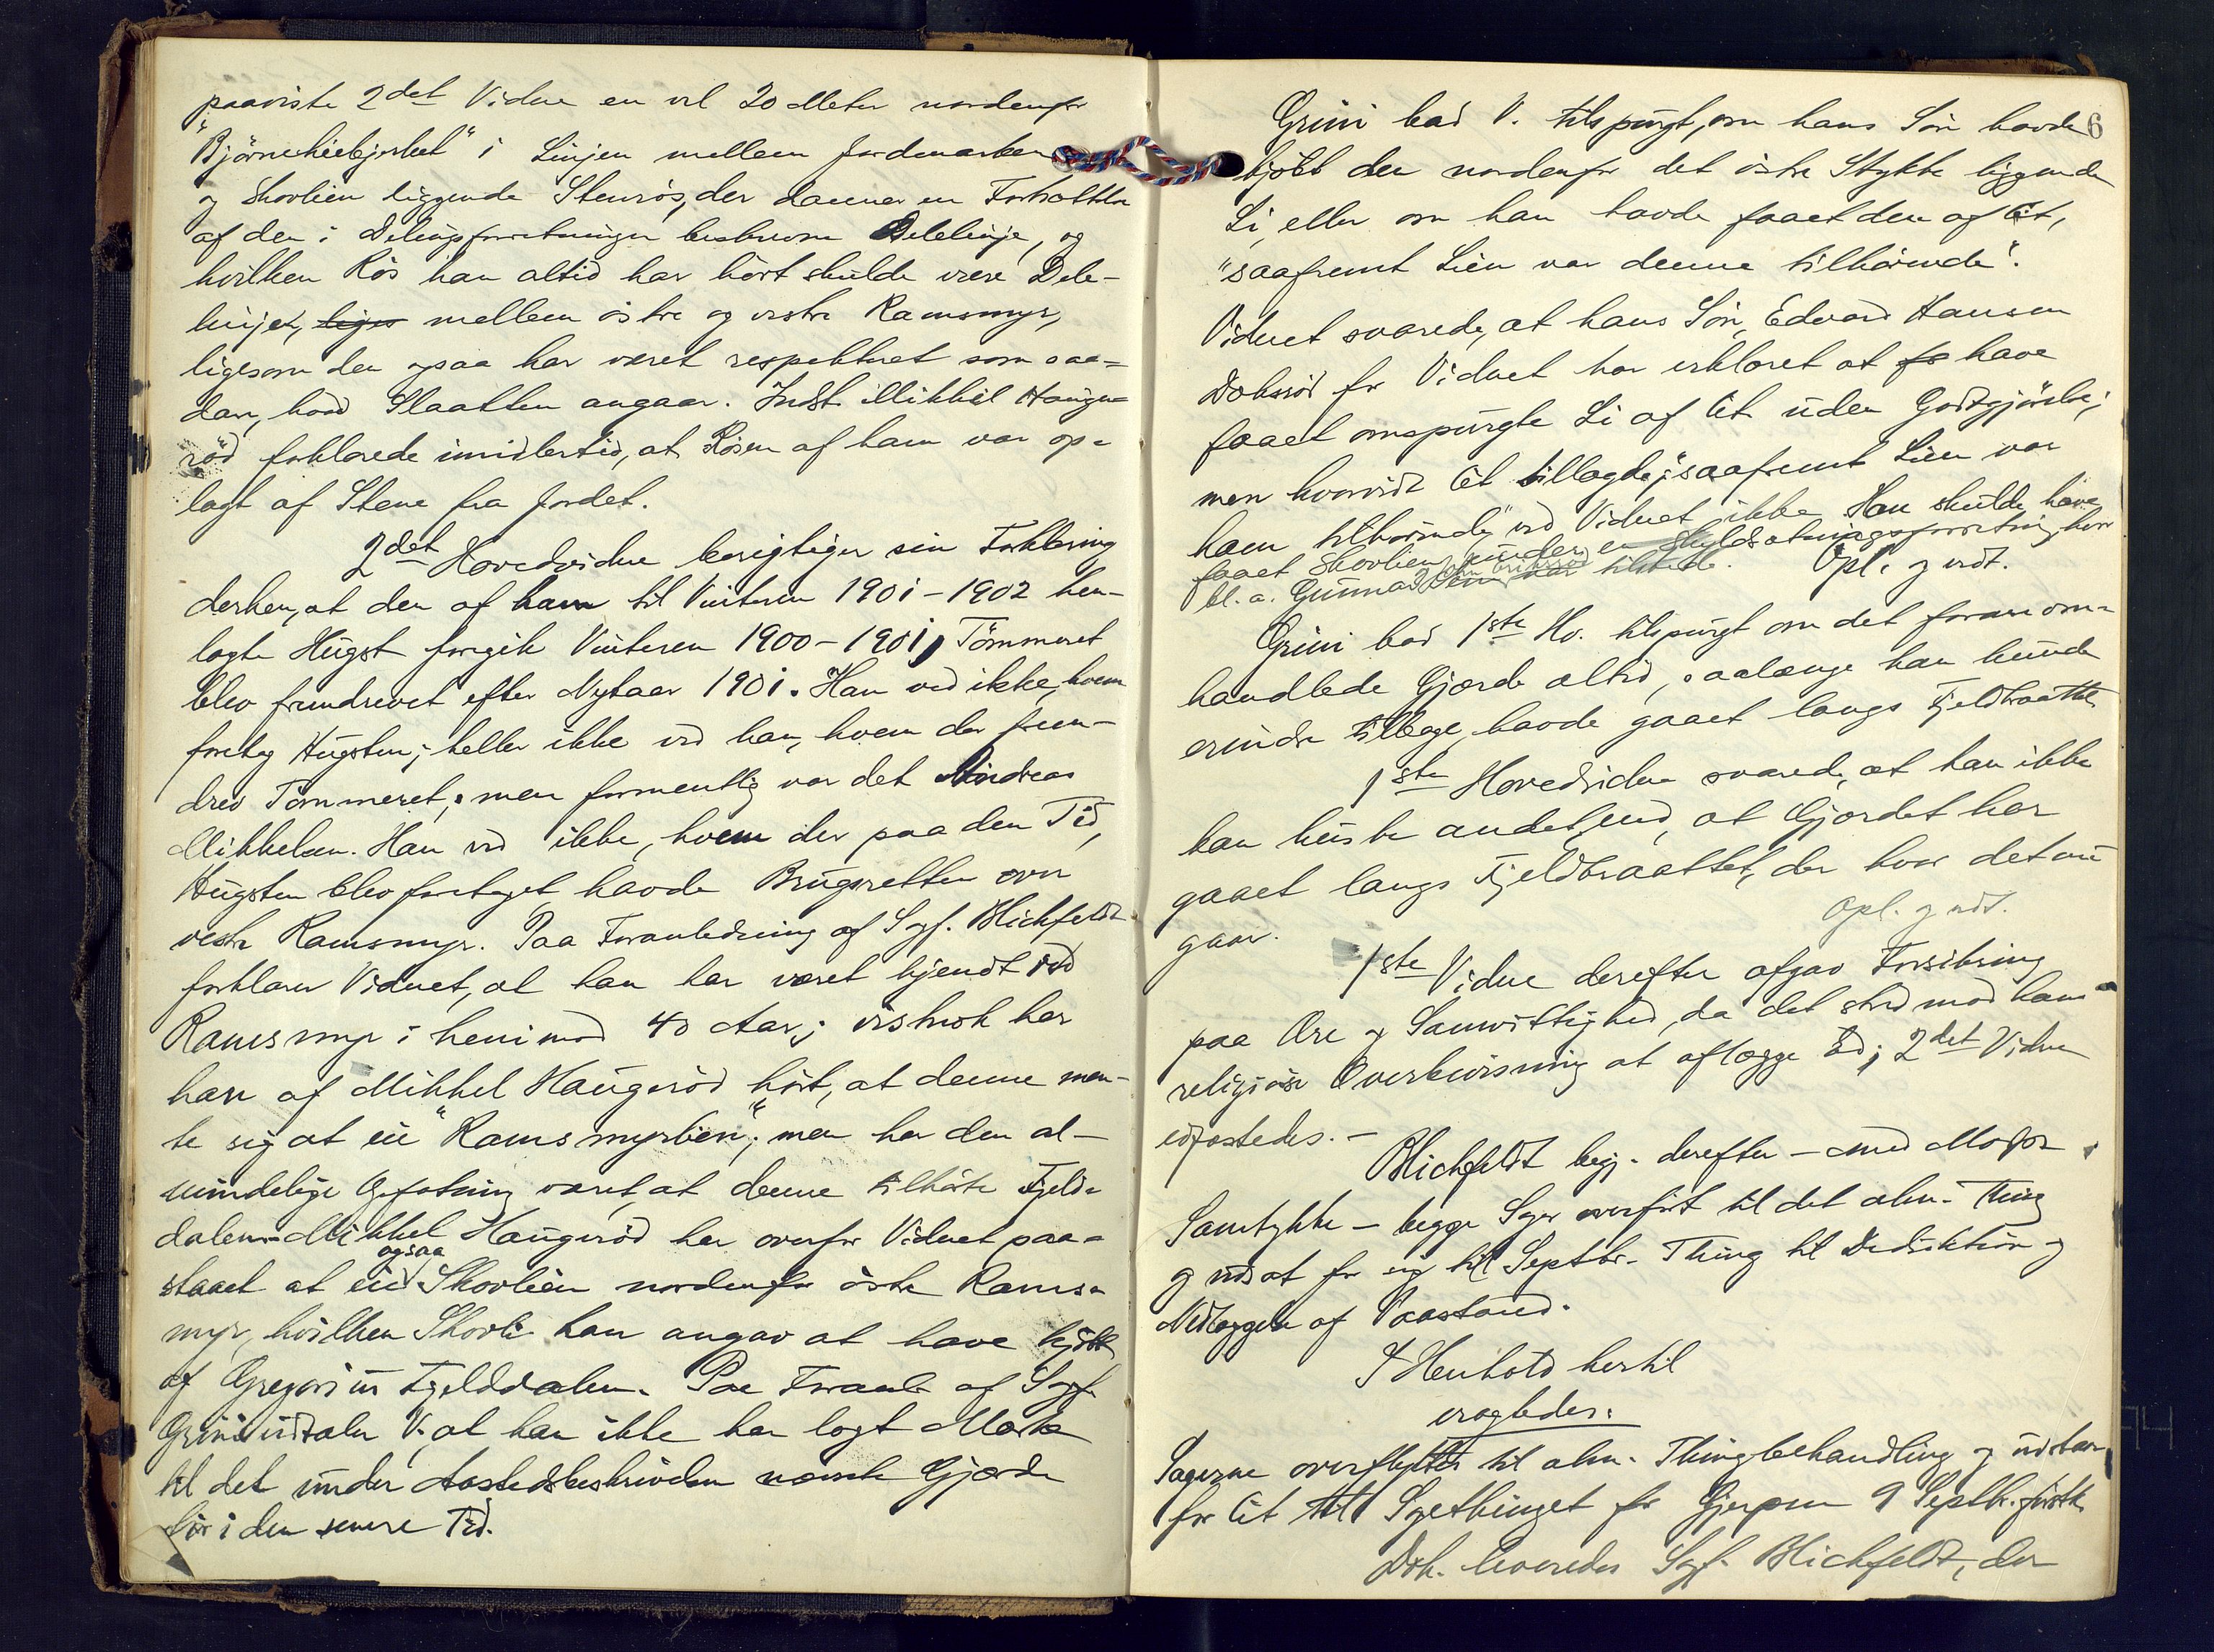 paaviste 2det Vidne en vel 20 Meter nordenfor
"Björnehiebjerket" i Linjen mellem Jordemarken
og Skovlien liggende Stenrös, der danner en Fortsættelse
af den i Delingsforretningen beskrevne Delelinje, og
hvilken Rös han altid har hört skulde være Dele-
linjen, liges mellem östre og vestre Ramsmyr,
ligesom den ogsaa har været respekteret som saa-
dan, hvad Slaatten angaar. Indst. Mikkel Hauge-
röd forklarede imidlertid, at Rösen af ham var op-
lagt af Stene fra Jordet.
2det Hovedvidne berigtiger sin Forklaring
derhen, at den af ham til Vinteren 1901-1902 hen-
lagte Hugst foregik Vinteren 1900-1901, Tömmeret
blev fremdrevet efter Nytaar 1901. Han ved ikke, hvem
foretog Hugsten; heller ikke ved han, hvem der frem-
drev Tömmeret, men formentlig var det Andreas
Mikkelsen. Han ved ikke, hvem der paa den Tid,
Hugsten blev foretaget, havde Brugsretten over
vestre Ramsmyr. Paa Foranledning af Sagf. Blichfeldt
forklarer Vidnet, at han har været kjendt ved
Ramsmyr i henimod 40 Aar; vistnok har
han af Mikkel Haugeröd hört, at denne men-
te sig at eie "Ramsmyrlien"; men har den al-
mindelige Opfatning været, at denne tilhörte Fjeld-
dalen. Mikkel Haugeröd har overfor Vidnet paa-
staaet at eie ogsaa Skovlien nordenfor östre Rams-
myr, hvilken Skovli han angav at have kjöbt
af Gregorius Fjelddalen. Paa Foranl. af Sagf.
Grini udtaler V. at han ikke har lagt Mærke
til det under Aastedsbeskrivelsen nævnte Gjærde
för i den senere Tid.
6
Grini bad V. tilspurgt, om hans Sön havde
kjöbt den nordenfor det östre Stykke liggende
Li, eller om han havde faaet den af Cit,
"saafremt Lien var denne tilhörende".
Vidnet svarede, at hans Sön, Edvard Hansen
Doksröd for Vidnet har erklæret at fo have
faaet omspurgte Li af Cit. uden Godtgjörelse;
men hvorvidt Cit tillagde; "saafremt Lien var
ham tilhörende" ved Vidnet ikke. Han skulde have
faaet Skovlien under en Skyldsætningsforretning, hvor
bl. a. Gunnar var tilstede. Opl. og vedt.
Grini bad 1ste Hv. tilspurgt om det foran om-
handlede Gjærde altid, saalænge han kunde
erindre tilbage, havde gaaet langs Fjeldbraattet.
1ste Hovedvidne svared, at han ikke
kan huske andet, end at Gjærdet har
gaaet langs Fjeldbraattet, der hvor det nu
gaar.
Opl. og vedt.
1ste Vidne derefter afgav Forsikring
paa Ære og Samvittighed, da det stred mod hans
religiöse Overbevisning at aflægge Ed; 2det Vidne
edfæstedes. -
Blichfeldt begj. derefter - med Modpr.
Samtykke - begge Sager overfört til det alm. Thing
og udsat for sig til Septbr. Thing til Deduktion og
Nedlæggelse af Paastand.
I Henhold hertil
eragtedes:
Sagerne overflyttes til alm. Thingbehandling og udstaar
for Cit til Sagethinget for Gjerpen 9 Septbr. förstk.
Dok. leveredes Sagf. Blichfeldt, der